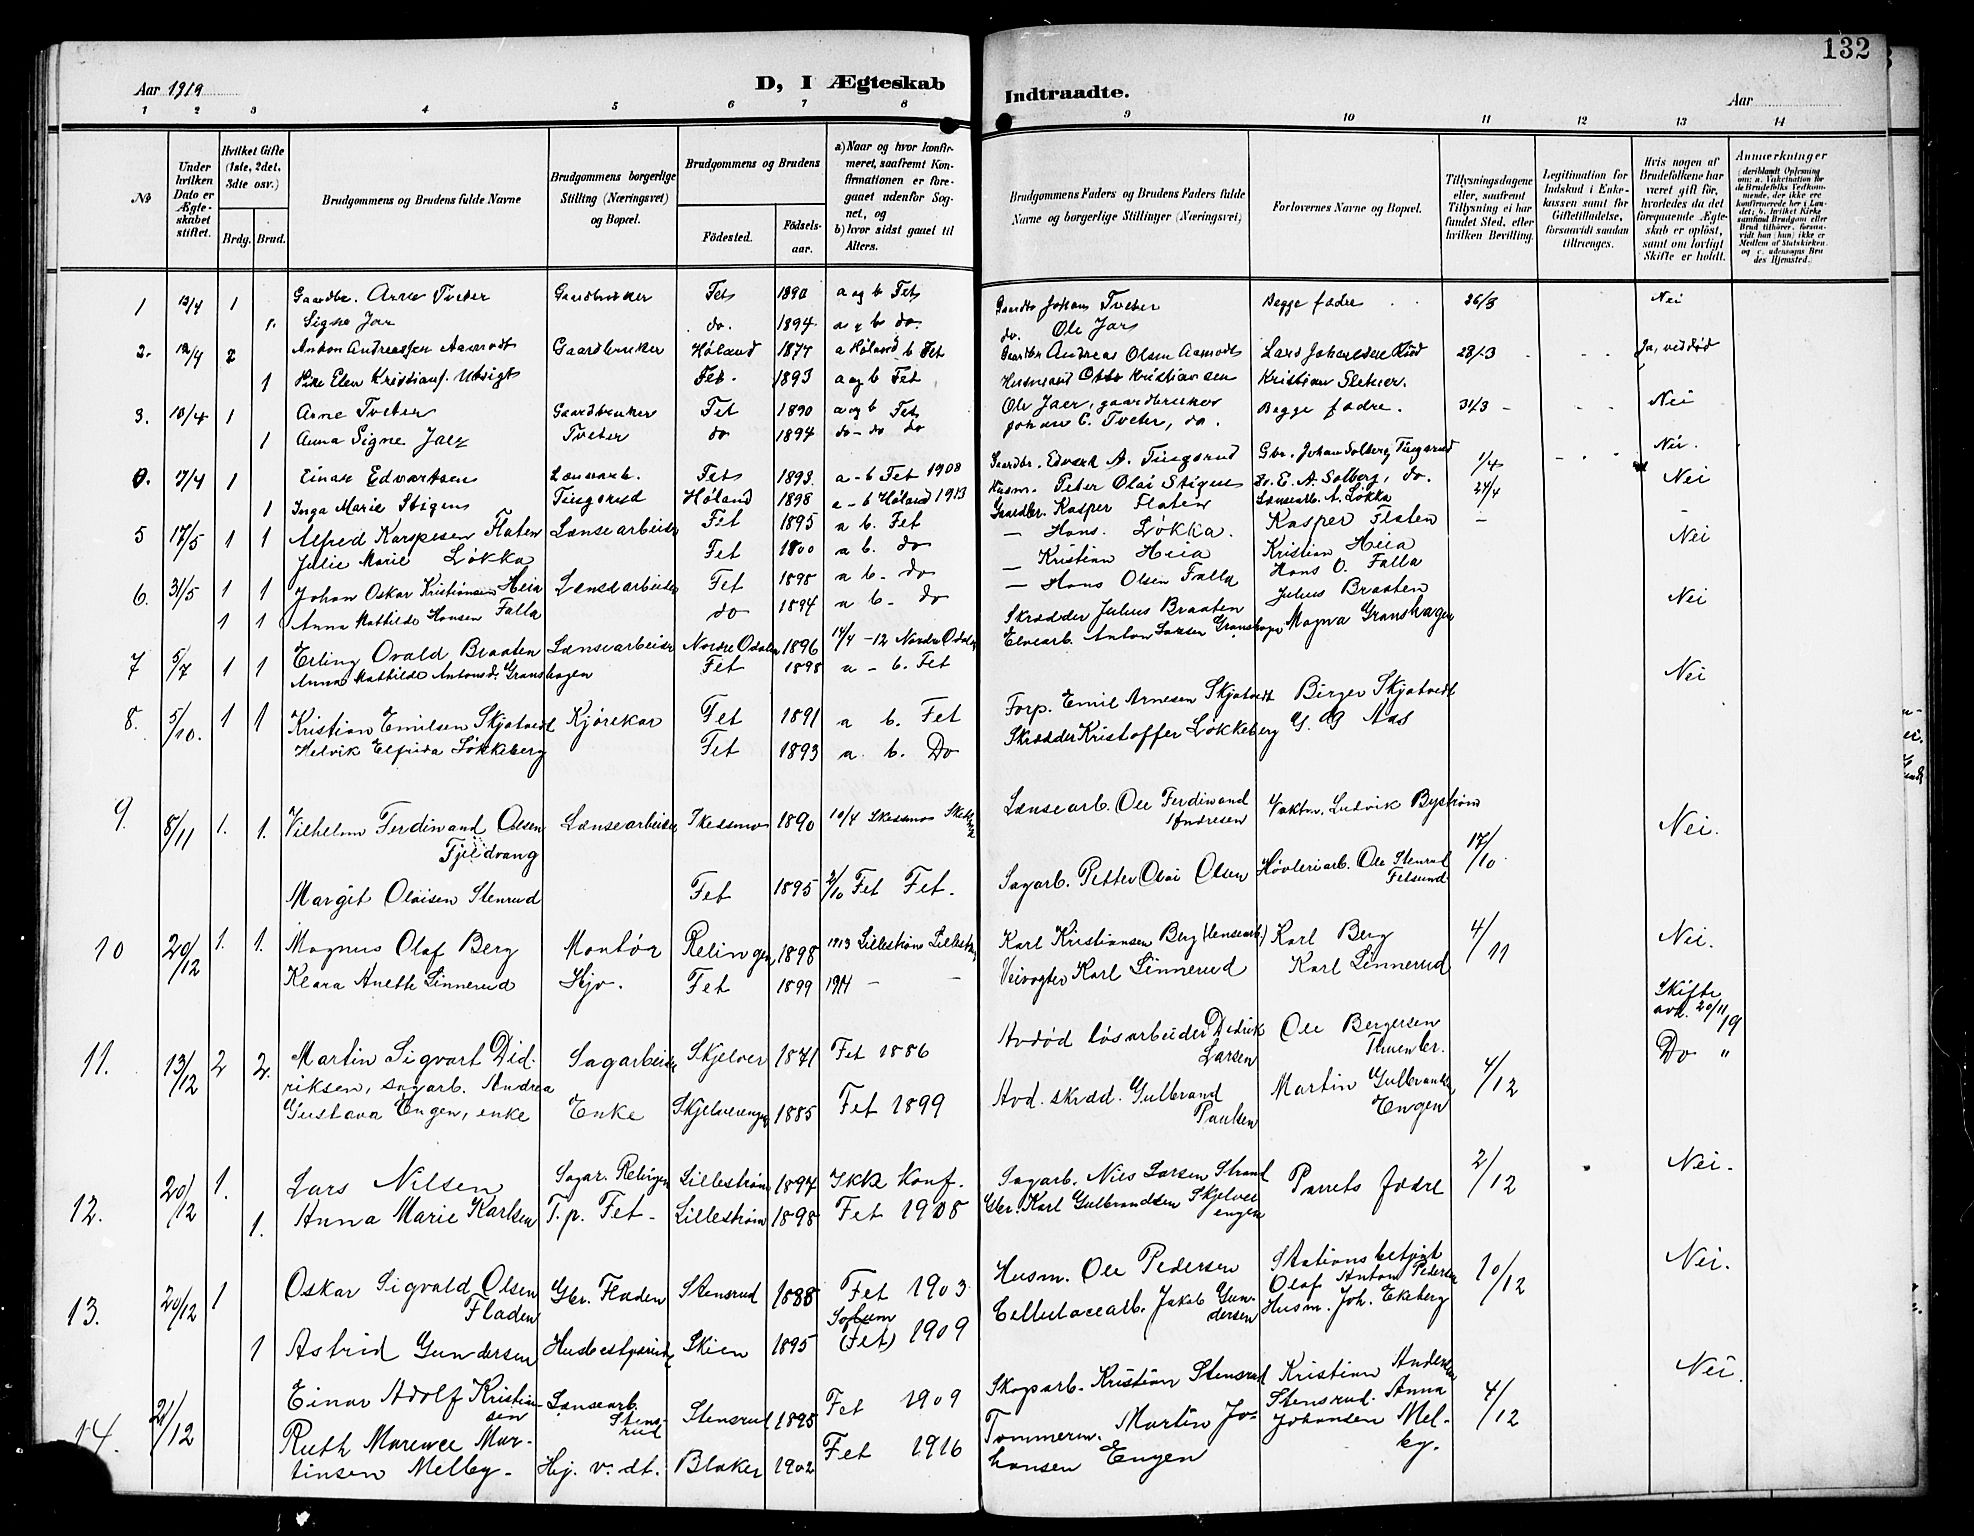 132
Aar 1919
D, I Ægteskab
Indtraadte.
Aar
1 2 3 4 5 6 7 8 9 10 11 12 13 14
No
Under hvilken Dato er Ægteskabet stiftet.
Hvilket Gifte (1ste, 2det, 3dte osv.)
Brdg. Brud.
Brudgommens og Brudens fulde Navne
Brudgommens borgerlige Stilling (Næringsvei) og Bopæl.
Brudgommens og Brudens
Födested.
Födselsaar.
a) Naar og hvor konfirmeret, saafremt Konfirmationen er foregaaet udenfor Sognet, og
b) hvor sidst gaaet til Alters.
Brudgommens Faders og Brudens Faders fulde Navne og borgerlige Stillinger (Næringsvei)
Forlovernes Navne og Bopæl.
Tillysningsdagene eller, saafremt Tillysning ei har fundet Sted, efter hvilken Bevilling.
Legitimation for Indskud i Enkekassen samt for Giftetilladelse, forsaavidt saadan tiltrænges.
Hvis nogen af Brudefolkene har været gift för, hvorledes da det foregaaende Ægteskab er oplöst, samt om lovligt Skifte er holdt.
Anmærkninger
1 13/4 1 Gaardbr. Arne Tveter Gaardbruker Fet 1890 a og b Fet Gaardbr Johan Tveter Begge fædre 26/3 Nei
1. Signe Jar do. 1894 a og b do. do. Ole Jar
2. 12/4 2 Anton Andreassen Aamodt Gaardbruker Høland 1874 a Høland b Fet Gaardbr Andreas Olsen Aamodt 28/3 Ja, ved død
1 Elen Kristians. Utsigt Fet. 1893 a og b Fet Husmand Otto Kristiansen Kristian Sletner.
3. 13/4 1 Arne Tveter Gaardbruker Fet 1890 a og b Fet Ole Jaer, gaardbruker Begge fædre. 31/3 Nei
1 Anna Signe Jaer Tveter do 1894 do - do do Johan E. Tveter, do.
17/4 1 Einar Edvartsen Lænsearb. Fet 1893 a - b Fet 1908 Gaardbr. Edvard A. Tiegsrud Gbr. Johan Solberg Tiegsrud 1/4 Nei.
1 Inga Marie Stigens Tiegsrud Høland 1898 a - b Høland 1913 Husm. Peter Olai Stigen E. A. Solberg, do. 24/4 Nei
5 17/5 1 1 Alfred Karspesen Flaten Lænsearbeider Fet 1895 a b. Fet Gaardbr. Kasper Flaten Lænsearb. A. Løkka
Julie Marie Løkka Fet 1800 a b. do — Hans. Løkka. Kasper Flaten — Nei
6. 31/5 1 1 Johan Oskar Kristiansen Heia Lænsearbeider Fet 1898 a b. do — Kristian Heia Kristian Heia
1 1 Anna Mathilde Hansen Falla do 1894 a b. do — Hans Olsen Falla Hans O. Falla Nei
7 5/7 1 1 Erling Ovald Braaten Lænsearbeider Nordre Odalen 1896 14/4 - 12 Nordre Odalen Skrædder Julius Braaten Julius Braaten
Anna Mathilde Antonsd. Granshagen Fet 1898 a - b. Fet Elvearb. Anton Larsen Granshagen Magna Granshagen Nei
8. 5/10. 1 1 Kristian Emilsen Skjatvedt Kjørekar Fet 1891 a b. Fet Forp. Emil Arnesen Skjatvedt Birger Skjatvedt
Helvik Elfrida Løkkeberg Fet 1893 a. b. Do Skrædder Kristoffer Løkkeberg G. G Aas
9. 8/11 1. 1. Vilhelm Ferdinand Olsen Lænsearbeider Skedsmo 1890 10/4 Skedsmo Lænsearb. Ole Ferdinand Vaktm. Ludvik Bystrøm Nei.
Fjeldvang Andresen
Margit Olaisen Stenrud Fet 1895 2/10 Fet Fet. Sagarb. Petter Olai Olsen Høvleriarb. Ole Stenrud 17/10
Fetsund
10 20/12 1. 1. Magnus Olaf Berg Montør Relingen 1898 1913 Lillestrøm Lillestrøm Karl Kristiansen Berg (lensearb.) Karl Berg 4/11 Nei.
Klara Anette Linnerud Hjv. Fet 1899 1914 — — Veivogter Karl Linnerud Karl Linnerud
Skifte
avh. 20/11 19
11. 13/12 2 2. Martin Sigvart Did- Sagarbeider Skjelver 1871 Fet 1886 Avdød løsarbeider Didrik Ole Bergersen Do "
riksen, sagarb. Andrea Larsen
Gustava Engen, enke Enke Skjelverengen 1885 Fet 1899 Avd. skræd. Gulbrand Martin Gulbrandsen 4/12
Paulsen Engen
12. 20/12 1. Lars Nilsen Sagar. Relingen Lillestrøm 1897 Ikk Konf. Sagarb. Nils Larsen Strand Parrets fædre 2/12 Nei.
1. Anna Marie Karlsen T.p. Fet Lillestrøm 1898 Fet 1908 Gbr. Karl Gulbrandsen Skjelver
engen
13. 20/12 1 Oskar Sigvald Olsen Gbr. Fladen Stensrud 1888 Fet 1903 Husm. Ole Pedersen Stationsbetjent 10/12 Nei.
Fladen Solum Olaf Anton Pedersen
1 Astrid Gundersen Skien 1895 (Fet) 1909 Cellulosearb. Jakob Gun- Husm. Joh. Ekeberg
dersen
14. 21/12 Einar Adolf Kristian- Lænsearb. Stensrud 1895 Fet 1909 Skogsarb. Kristian Stensrud Kristian Andersen 4/12 Nei.
sen Stensrud Stensrud. Anna
Ruth Marence Mar- Fet 1916 Tømmerm. Martin Jo- Johansen Mel-
tinsen Melby - Hj. v. dt. Blaker 1902 hansen Engen by.